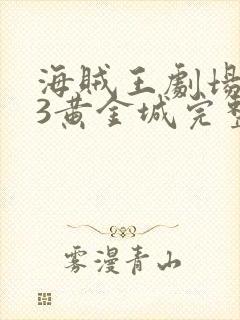 海賊王劇場
3黃金城完整
雾漫青山